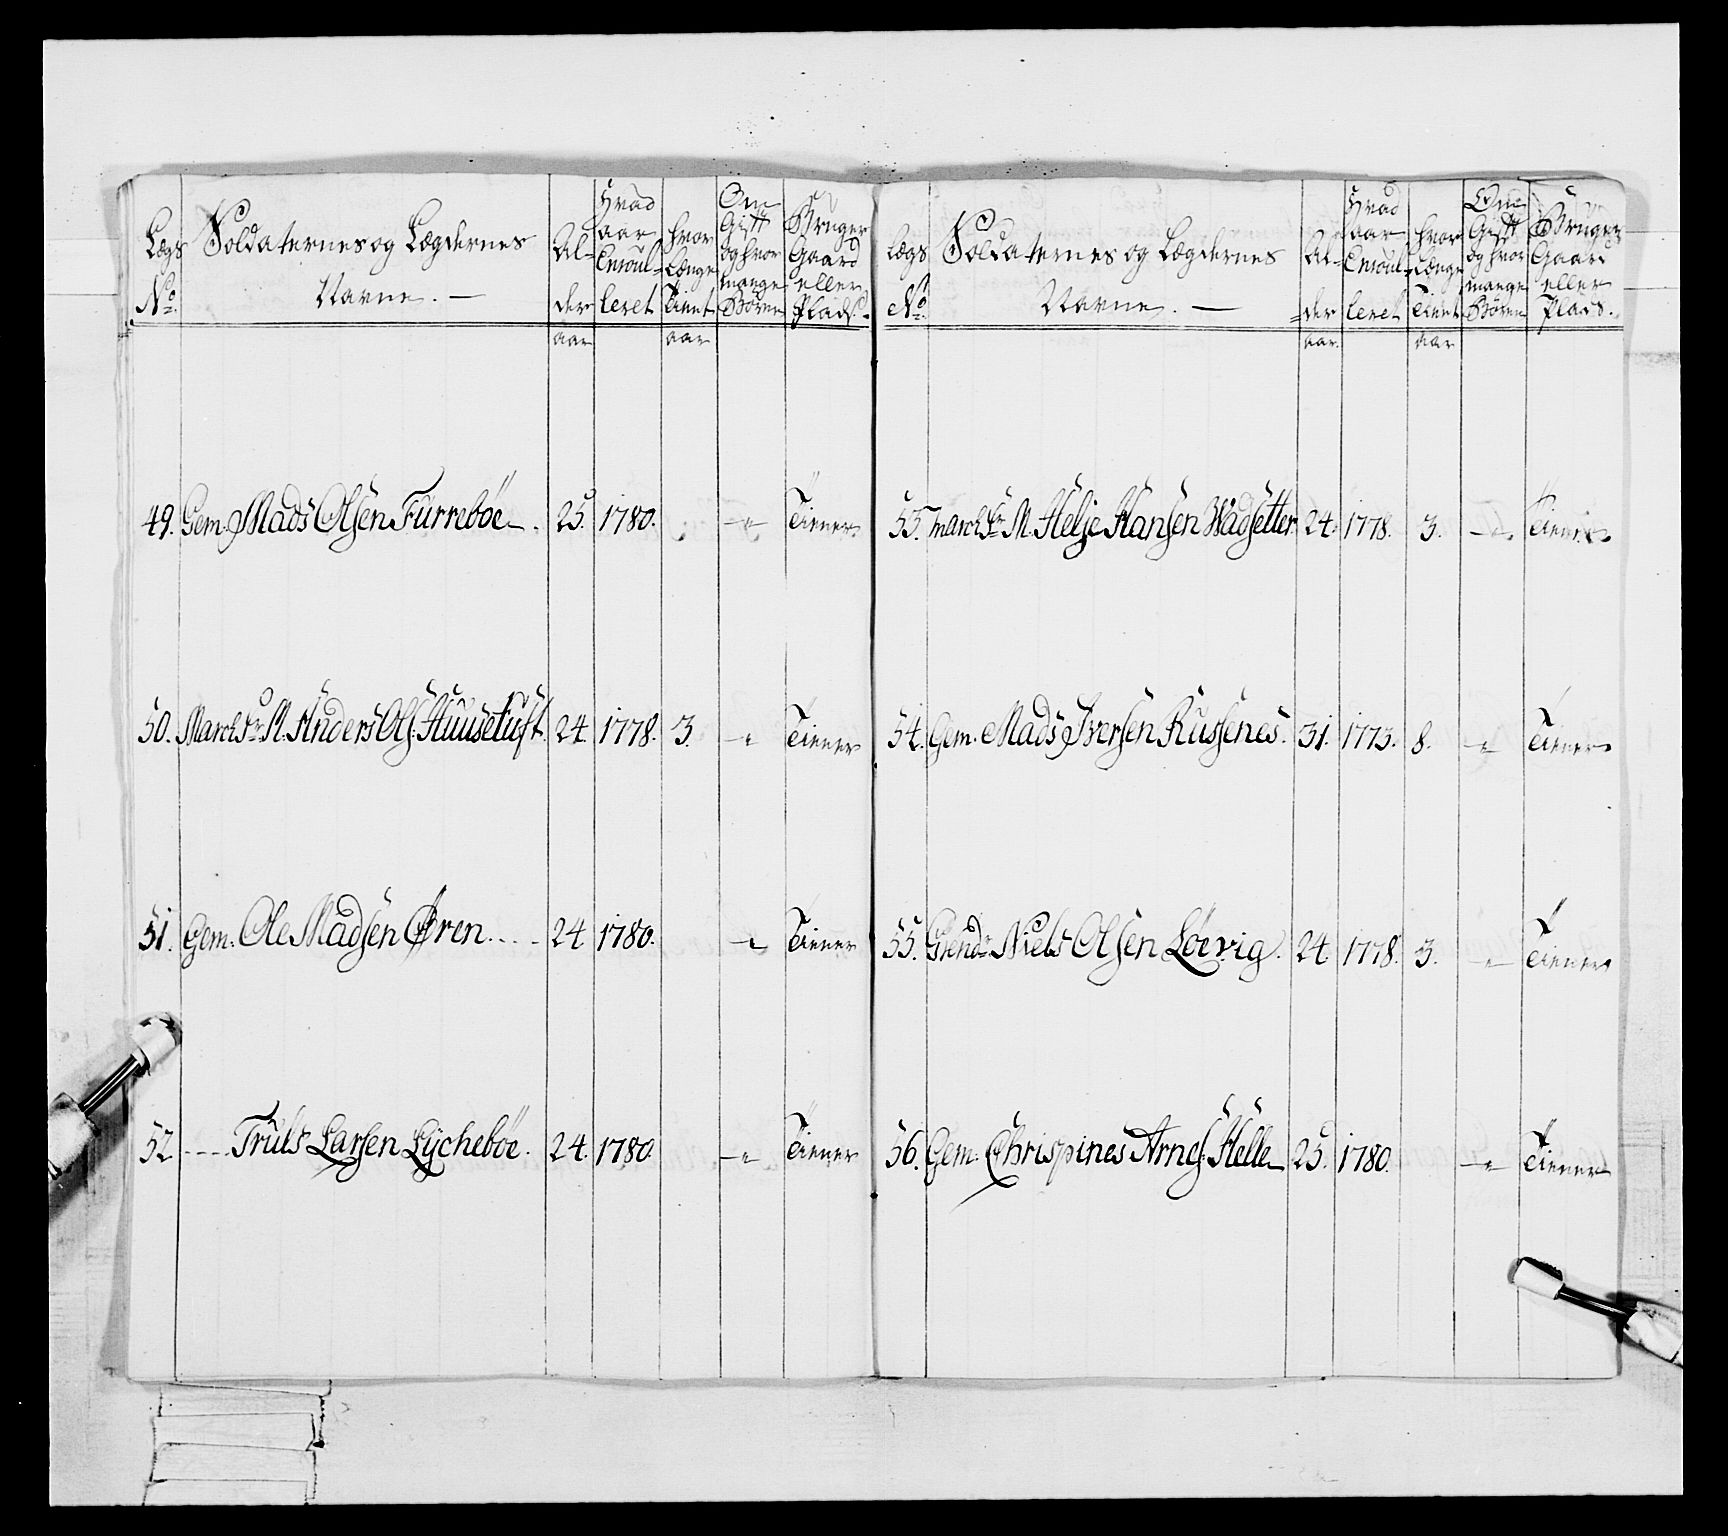 Lægs No. | Soldaternes og Lægdernes Navne. — | Al- der | Hvad aar Enroul- leret | Hvor Længe Tient | Om Gift og hvor mange Børn | Bruger Gaard eller Plads.
aar | aar
49. Gem. Mads Olsen Furrebøe . 25. 1780. — " Tiener
50. March Sr. M. Anders Ols. Huusetuft. 24. 1778. 3. — " Tiener
51. Gem. Ole Madsen Øren . . . 24 1780. — " Tiener
52 - - - Truls Larsen Lÿchebøe. 24. 1780. — " Tiener
Lægs No. | Soldaternes og Lægdernes Navne. — | Al- der | Hvad aar Enroul- leret | Hvor Længe Tient | Om Gift og hvor mange Børn | Bruger Gaard eller Plads.
aar. | aar
53. March Sr. M. Helje Hansen Wadsetter. 24. 1778. 3. — " Tiener
54. Gem. Mads Iversen Russenes. 31. 1773. 8. — " Tiener
55. Grendr. Niels Olsen Løevig. 24. 1778. 3. — " Tiener
56. Gem. Chrispines Arnes. Helle 25. 1780. — " Tiener